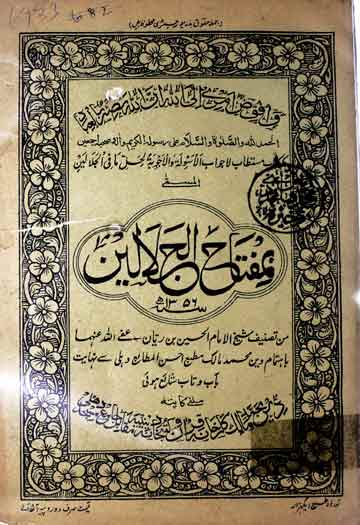 1933
وافوض امری الی اللہ ان اللہ بصیر بالعباد
الحمد للہ والصلوة والسلام علی رسولہ الکریم وآلہ وصحبہ اجمعین
مستطاب لاجواب الاسولة والاجوبة لحل ما فی الجلالین
المسمی
بمفتاح الجلالین
سنہ ۱۳۵۶ھ
من تصنیف شیخ الامام الحسین بن ریان عفے اللہ عنہما
باہتمام دین محمد مالک مطبع احسن المطابع دہلی سے نہایت
آب و تاب شائع ہوئی
ملنے کا پتہ
قیمت صرف دو روپیہ آٹھ آنے